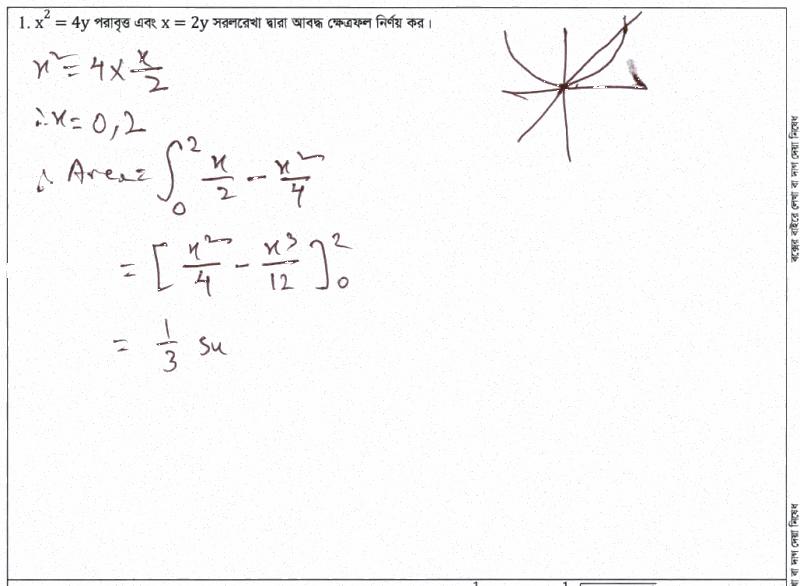 1. x² = 4y পরাবৃত্ত এবং x = 2y সরলরেখা দ্বারা আবদ্ধ ক্ষেত্রফল নির্ণয় কর।
x² = 4 × x/2
∴ x = 0, 2
∴ Area = ∫₀² x/2 − x²/4
= [x²/4 − x³/12]₀²
= 1/3 su
বক্সের বাইরে লেখা বা দাগ দেয়া নিষেধ
বা দাগ দেয়া নিষেধ